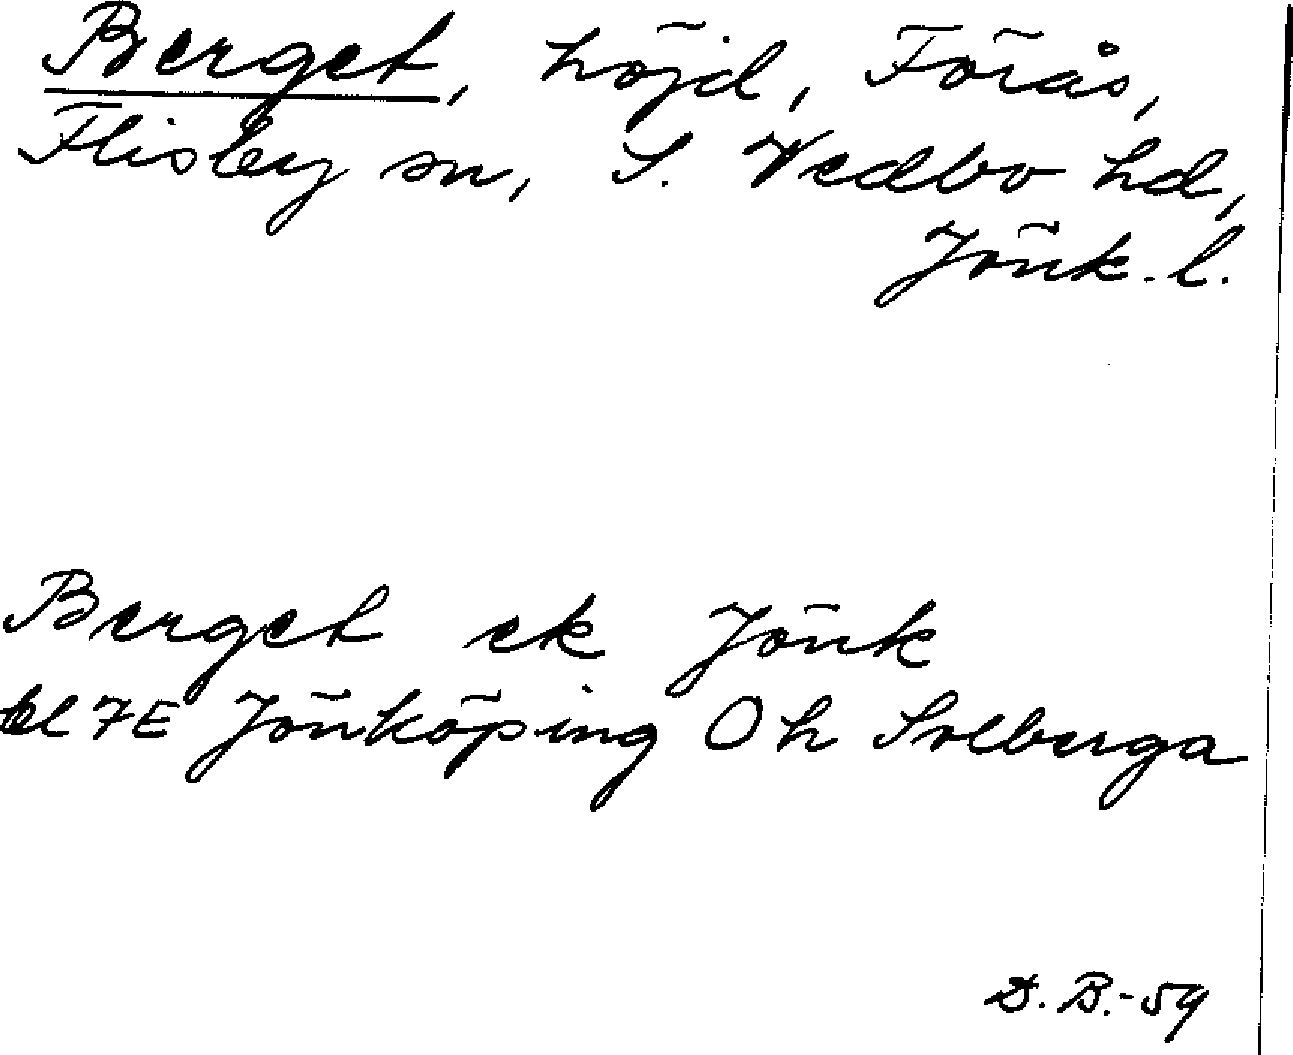 Berget, höjd, Förås,
Flisby sn, S. Vedbo hd,
Jönk. l.
Berget ek Jönk
bl 7E Jönköping Öh Solberga
D. B.-59